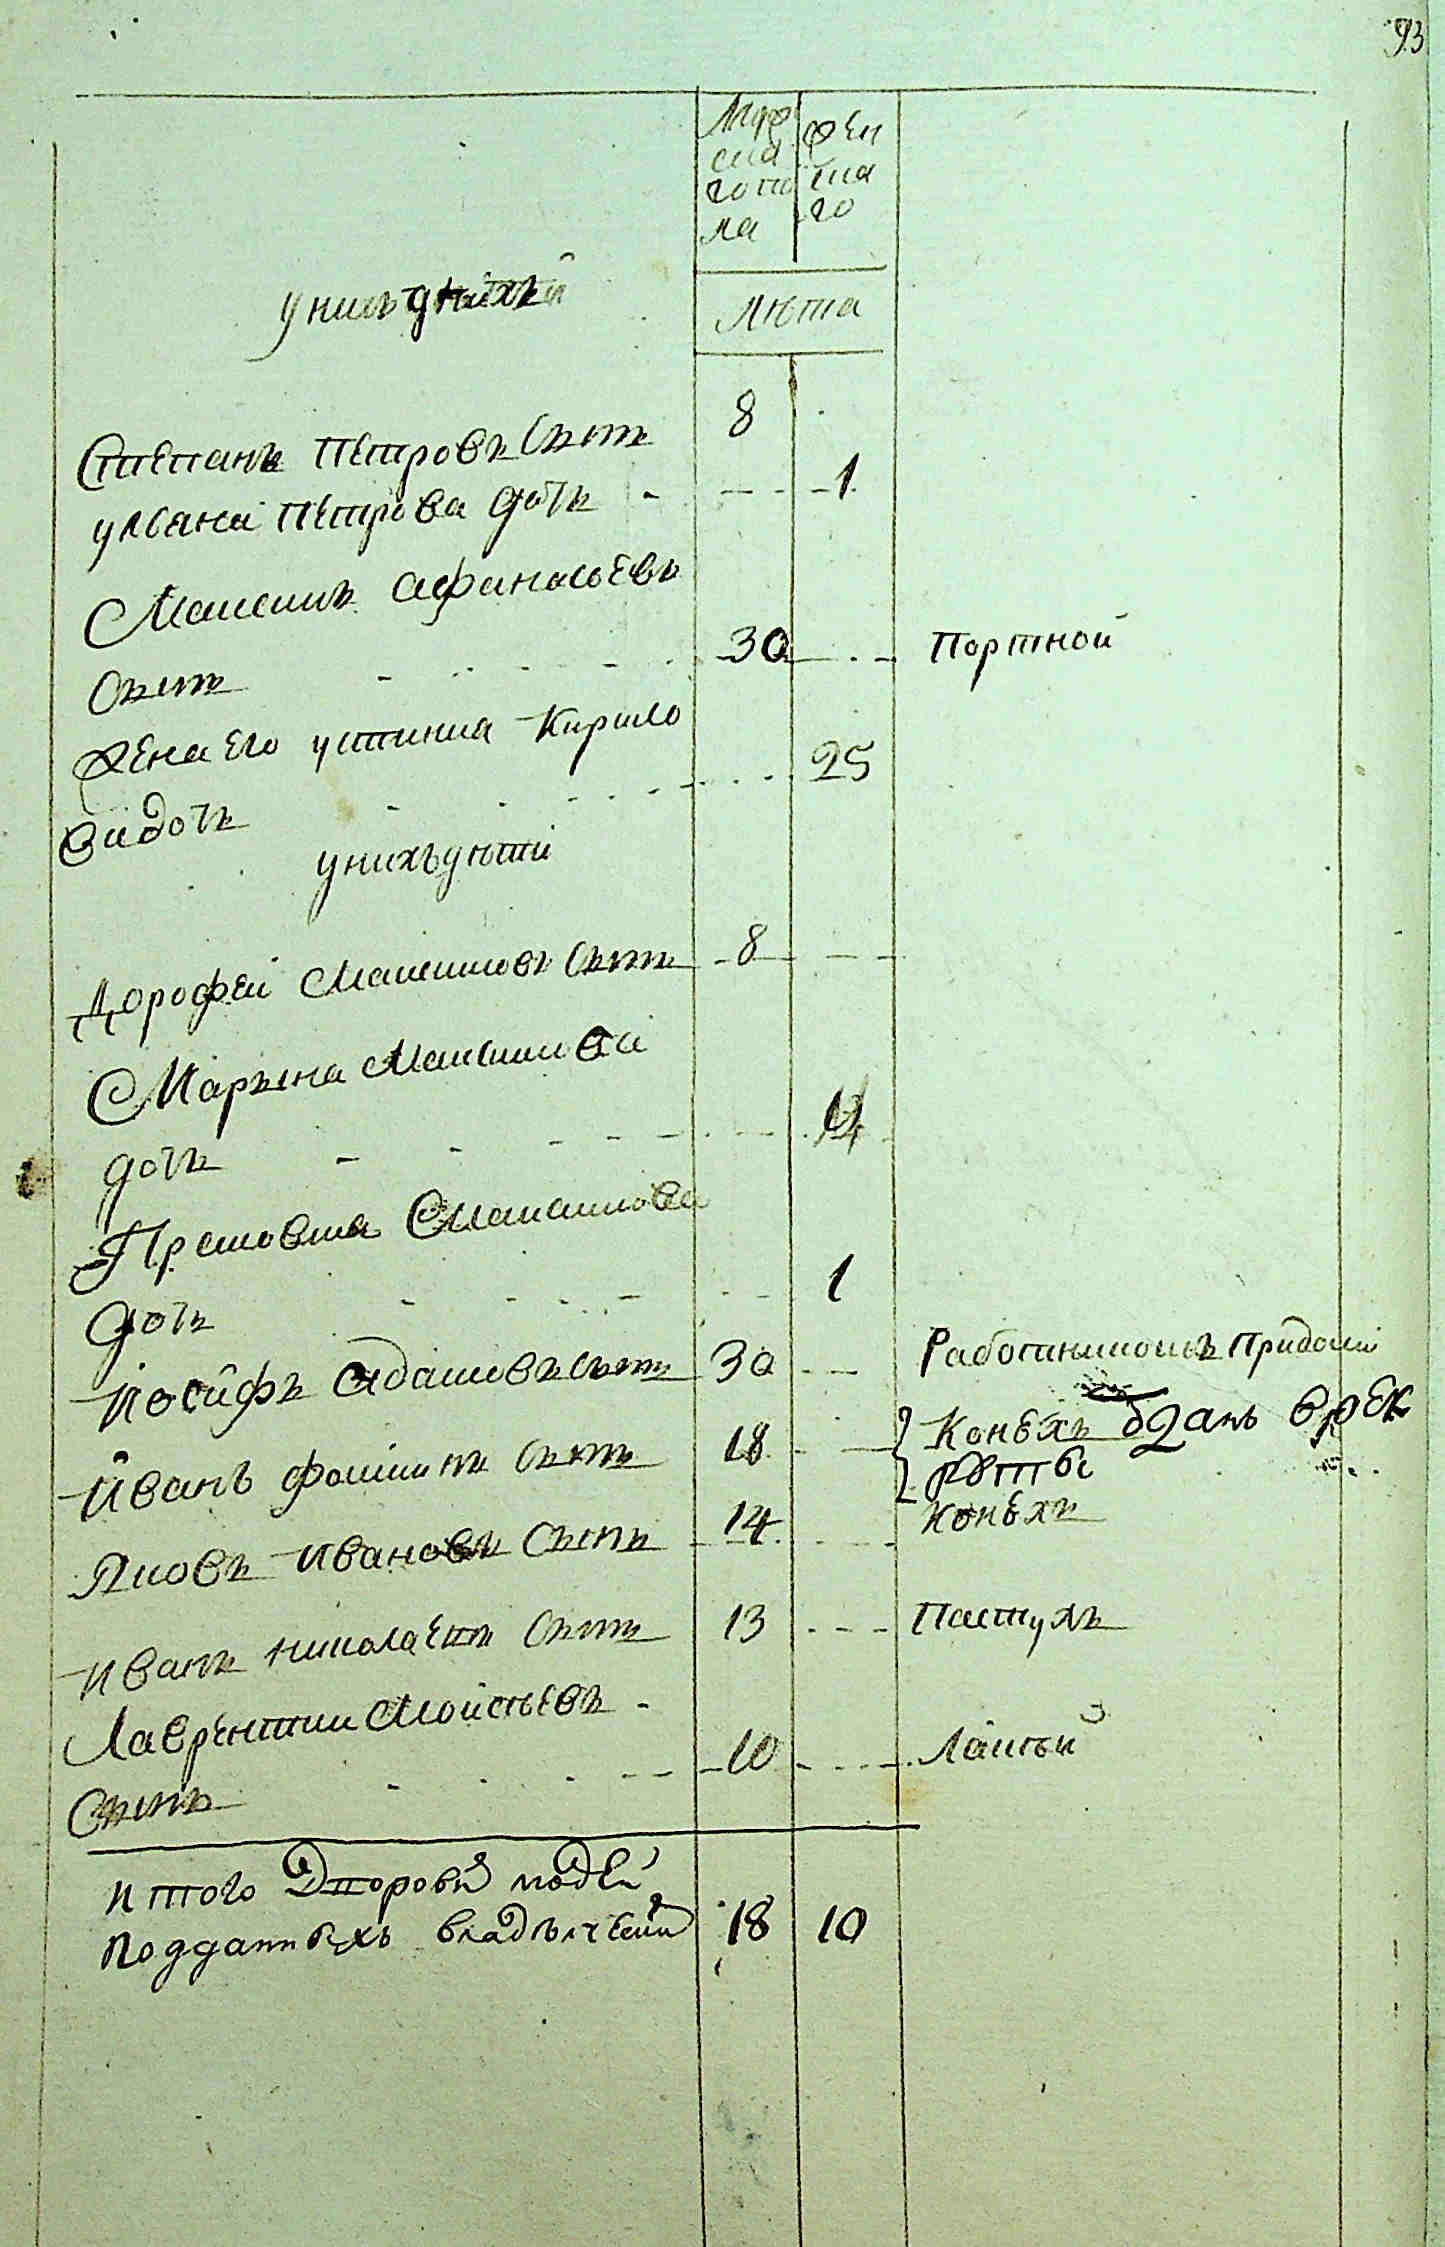 93
Муж
ска
го по
ла
жен
ска
го
лѣта
у нихъ дѣти
Степанъ Петровъ Сынъ 8
ульяна Петрова дочь 1
Максимъ афанасьевъ
Сынъ 30 Портной
жена Его устиния Кирило
ва дочь 25
у нихъ дѣти
Дорофей Максимовъ Сынъ 8
Марьяна Максимова
дочь
Прасковия Максимова
дочь 1
Иосифъ адамовъ Сынъ 30 Работникомъ При доме
Иванъ фоминъ Сынъ 18 Конюхъ взанъ в рек
руты
Яковъ Ивановъ Сынъ 14 Конюхъ
Иванъ николаевъ Сынъ 13 Пастухъ
Лаврентии Моисѣевъ
Сынъ 10 Лакѣй
Итого Дворовы людей
подданныхъ владѣлчески 18 10